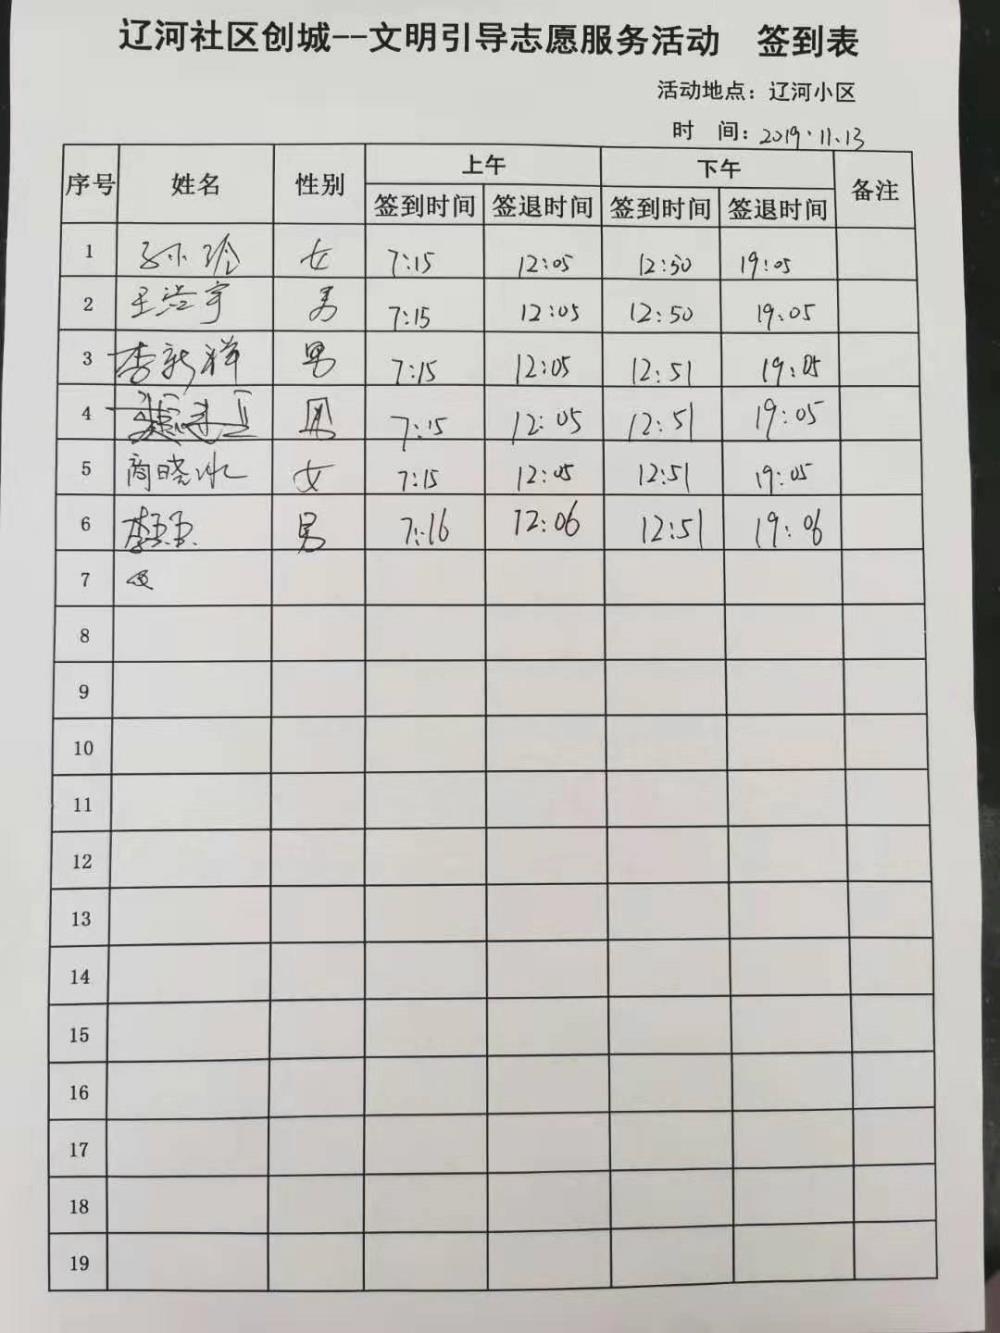 辽河社区创城--文明引导志愿服务活动 签到表
活动地点：辽河小区
时 间：2019.11.13
序号 姓名 性别 上午 下午 备注
签到时间 签退时间 签到时间 签退时间
1 孙玲 女 7:15 12:05 12:50 19:05
2 王浩宇 男 7:15 12:05 12:50 19:05
3 李新祥 男 7:15 12:05 12:51 19:05
4 男 7:15 12:05 12:51 19:05
5 商晓冰 女 7:15 12:05 12:51 19:05
6 李 男 7:16 12:06 12:51 19:06
7
8
9
10
11
12
13
14
15
16
17
18
19